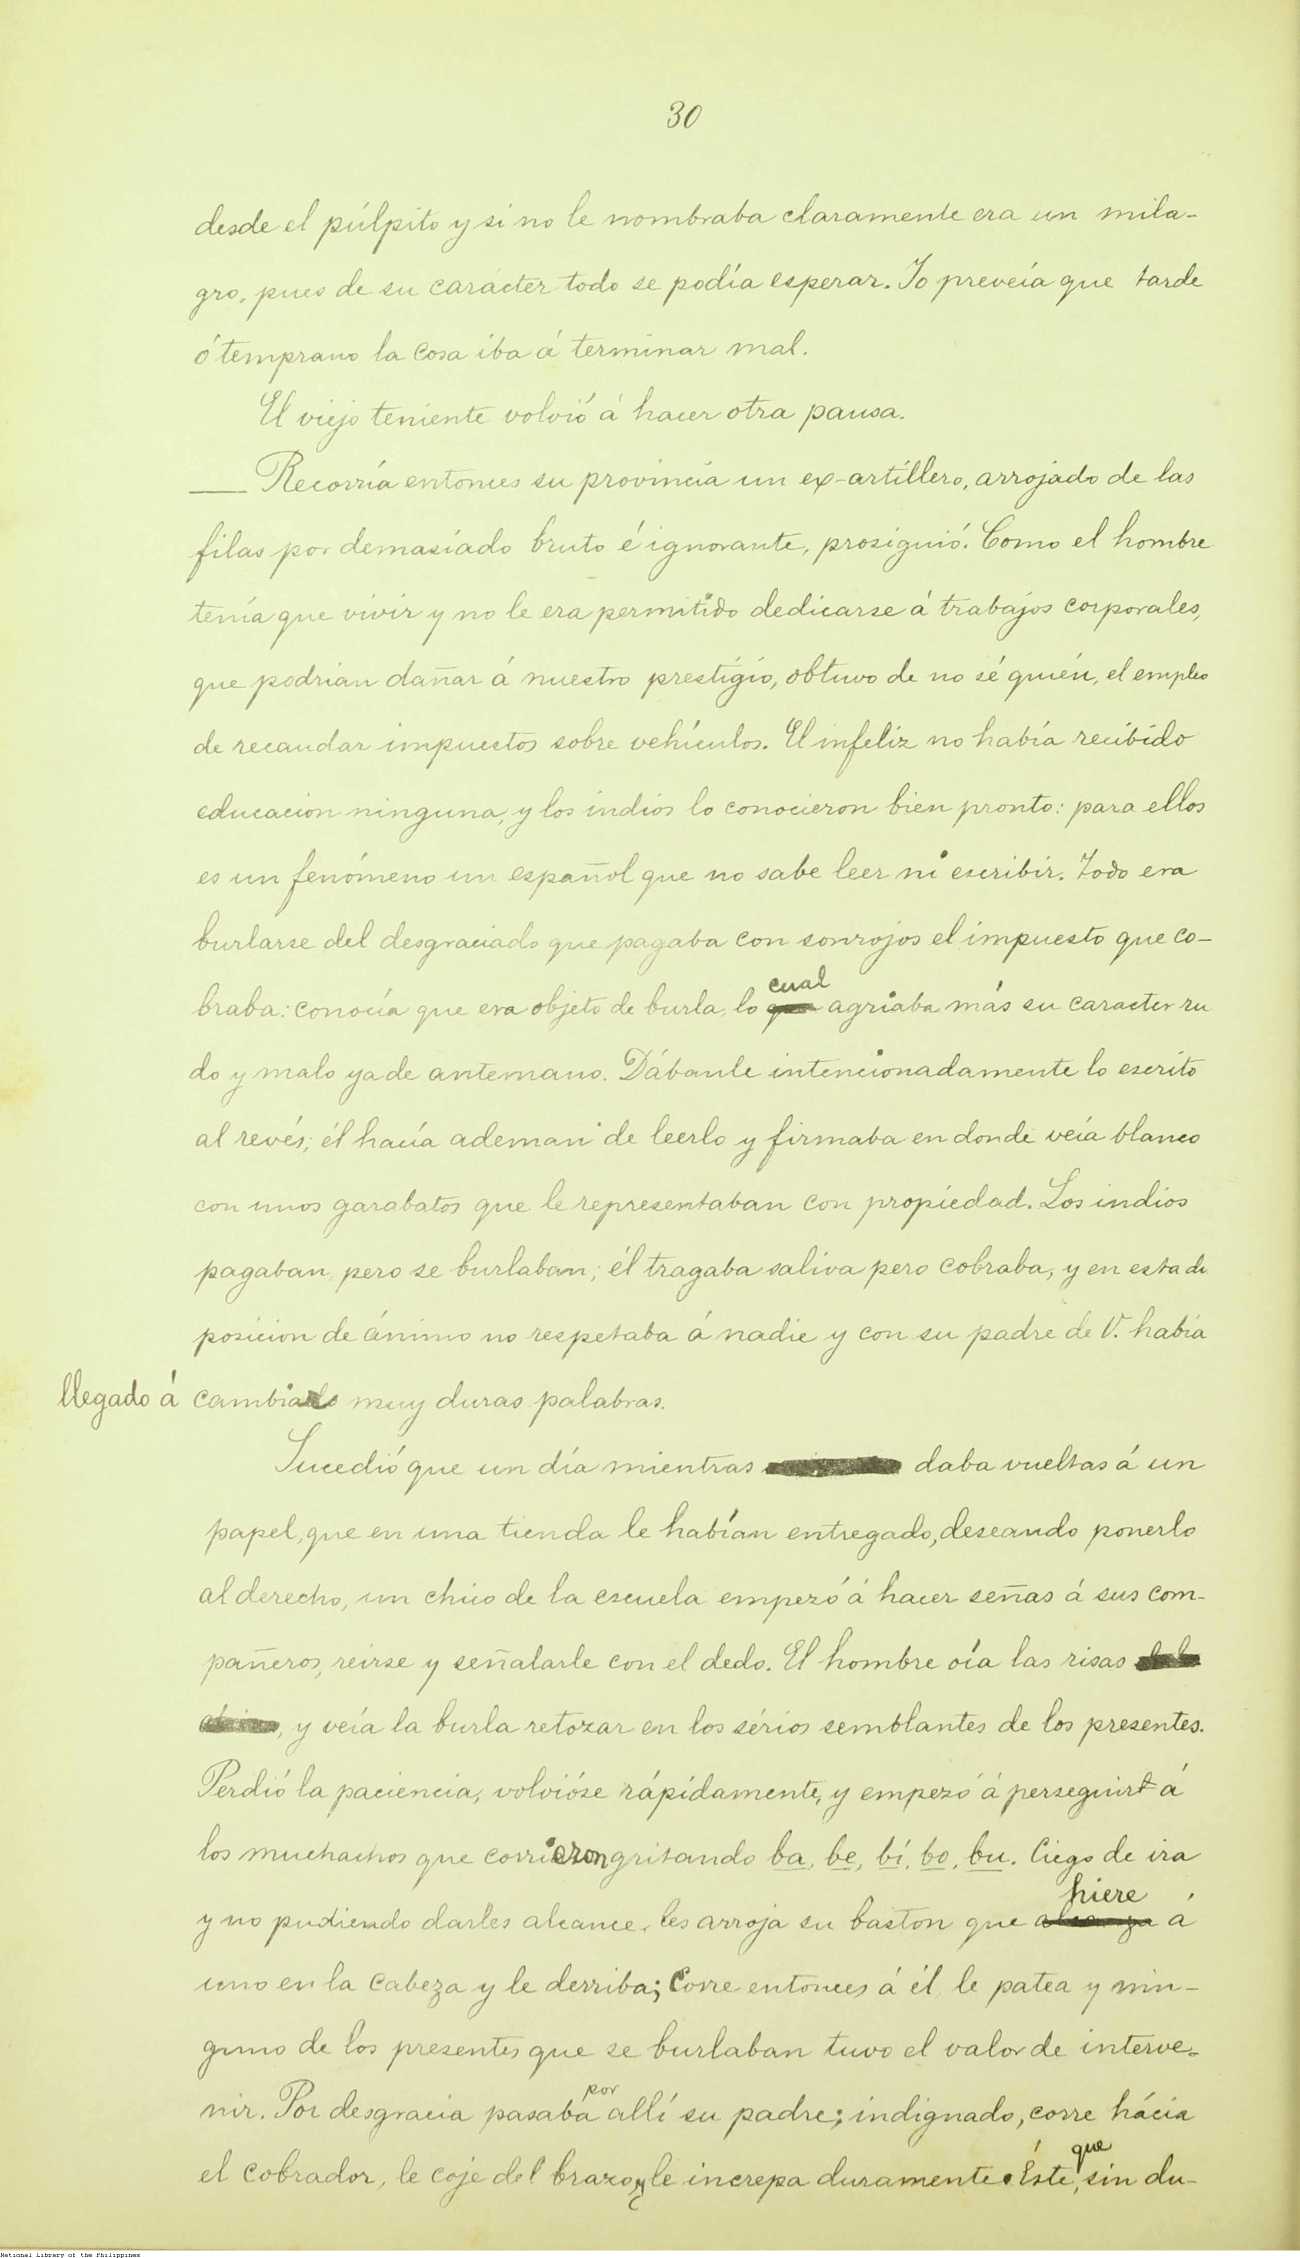 30
desde el púlpito y si no le nombraba claramente era un mila-
gro, pues de su carácter todo se podía esperar. Yo preveía que tarde
ó temprano la cosa iba á terminar mal.
El viejo teniente volvió á hacer otra pausa.
— Recorría entonces su provincia un ex-artillero, arrojado de las
filas por demasiado bruto é ignorante, prosiguió. Como el hombre
tenía que vivir y no le era permitido dedicarse á trabajos corporales,
que podrían dañar á nuestro prestigio, obtuvo de no sé quién, el empleo
de recaudar impuestos sobre vehículos. El infeliz no había recibido
educacion ninguna, y los indios lo conocieron bien pronto: para ellos
es un fenómeno un español que no sabe leer ni escribir. Todo era
burlarse del desgraciado que pagaba con sonrojos el impuesto que co-
cual
braba: conocía que era objeto de burla, lo que agriaba más su caracter ru
do y malo ya de antemano. Dábanle intencionadamente lo escrito
al revés; él hacía ademan de leerlo y firmaba en donde veía blanco
con unos garabatos que le representaban con propiedad. Los indios
pagaban, pero se burlaban; él tragaba saliva pero cobraba, y en esta di
posicion de ánimo no respetaba á nadie y con su padre de V. había
llegado á cambiar muy duras palabras.
Sucedió que un día mientras daba vueltas á un
papel, que en una tienda le habían entregado, deseando ponerlo
al derecho, un chico de la escuela empezó á hacer señas á sus com-
pañeros, reirse y señalarle con el dedo. El hombre oía las risas
, y veía la burla retozar en los sérios semblantes de los presentes.
Perdió la paciencia, volvióse rápidamente, y empezó á perseguir á
los muchachos que corrieron gritando ba, be, bi, bo, bu. Ciego de ira
hiere
y no pudiendo darles alcance, les arroja su baston que alcanza á
uno en la cabeza y le derriba; corre entonces á él, le patea y nin-
guno de los presentes que se burlaban tuvo el valor de interve-
por
nir. Por desgracia pasaba allí su padre; indignado, corre hácia
que
el cobrador, le coje del brazo, y le increpa duramente. Éste, sin du-
National Library of the Philippines